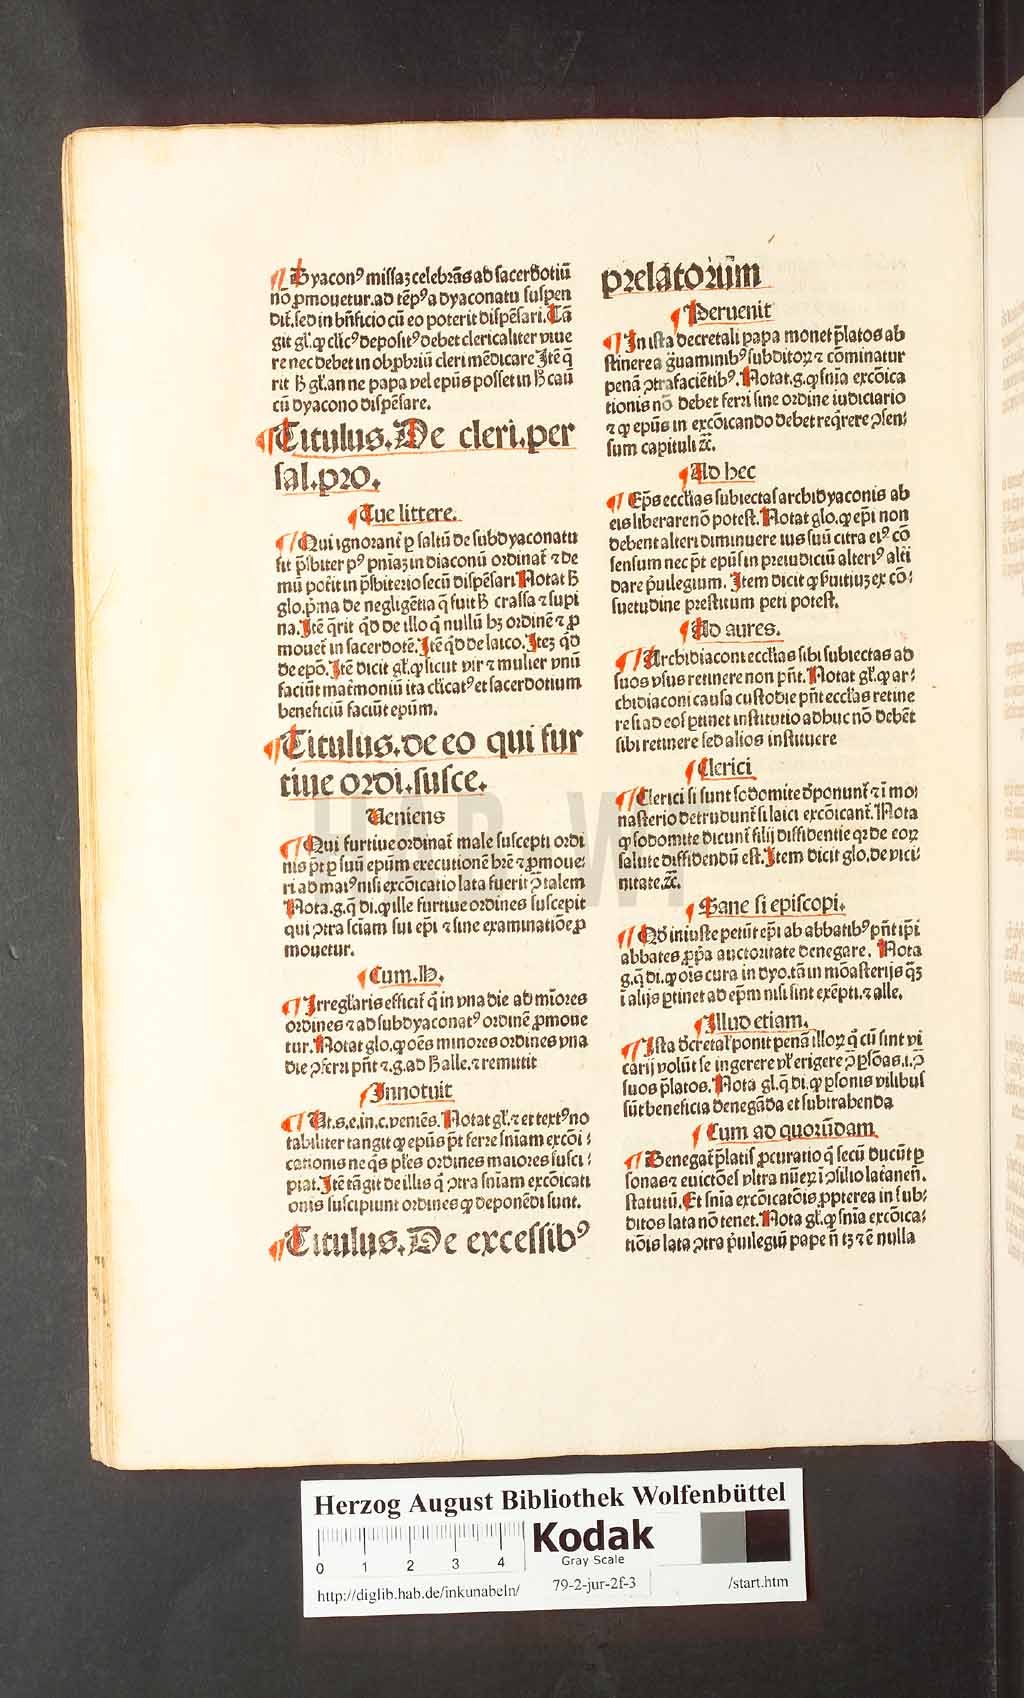 ¶ Dyaconꝰ missaꝫ celebrãs ad sacerdotiũ
nõ ꝓmouetur. ad tẽpꝰ a dyaconatu suspen
dit᷑. sed in bñficio cũ eo poterit dispẽsari. Tã
git gl̃. ꝙ clic̃ꝰ depositꝰ debet clericaliter viue
re nec debet in obꝓbriũ cleri mẽdicare Itẽ q̃
rit ℏ gl̃. an ne papa vel epũs posset in ℏ casũ
cũ dyacono dispẽsare.
¶ Titulus. De cleri. per
sal. pro.
¶ Tue littere.
¶ Qui ignorant᷑ ꝑ saltũ de subdyaconatu
fit p̃sbiter pꝰ pñiaꝫ in diaconũ ordinat᷑ ⁊ de
mũ potit in p̃sbiterio secũ dispẽsari Notat ℏ
glo. p̃ma de negligẽtia q̃ fuit ℏ crassa ⁊ supi
na. Itẽ q̃rit q̃d de illo q̃ nullũ hꝫ ordinẽ ⁊ ꝓ
mouet᷑ in sacerdotẽ. Itẽ q̃d de laico. Iteꝫ q̃d
de epõ. Itẽ dicit gl̃. ꝙ sicut vir ⁊ mulier vnũ
faciũt mat᷑moniũ ita cl̃icatꝰ et sacerdotium
beneficiũ faciũt epũm.
¶ Titulus. de eo qui fur
tiue ordi. susce.
Veniens
¶ Qui furtiue ordinat᷑ male suscepti ordi
nis p̃t ꝑ suũ epũm executionẽ hr̃e ⁊ ꝓmoue⸗
ri ad maiꝰ nisi excõicatio lata fuerit ꝯ̃ talem
Nota. g. q̃ di. ꝙ ille furtiue ordines suscepit
qui ꝯtra sciam sui epĩ ⁊ sine examinatiõe ꝓ
mouetur.
¶ Cum. H.
¶ Irregl̃aris efficit᷑ q̃ in vna die ad mĩores
ordines ⁊ ad subdyaconatꝰ ordinẽ ꝓmoue
tur. Notat glo. ꝙ oẽs minores ordines vna
die ꝯferri pñt ⁊. g. ad ℏ alle. ⁊ remittit
¶ Innotuit
¶ Ut. s. e. in. c. veniẽs. Notat gl̃. ⁊ et textꝰ no
tabiliter tangit ꝙ epũs p̃t ferre sñiam excõi⸗
cationis ne q̃s pl̃es ordines maiores susci⸗
piat. Itẽ tãgit de illis q̃ ꝯtra sñiam excõicati
onis suscipiunt ordines ꝙ deponẽdi sunt.
¶ Titulus. De excessibꝰ
prelatorũm
¶ Peruenit
¶ In ista decretali papa monet p̃latos ab
stinere a g̃uaminibꝰ subditoꝝ ⁊ cõminatur
penã ꝯtrafaciẽtibꝰ. Notat. g. ꝙ sñia excõica
tionis nõ debet ferri sine ordine iudiciario
⁊ ꝙ epũs in excõicando debet req̃rere ꝯsen⸗
sum capituli ⁊c̃.
¶ Ad hec
¶ Ep̃s eccl̃ias subiectas archidyaconis ab
eis liberare nõ potest. Notat glo. ꝙ epĩ non
debent alteri diminuere ius suũ citra eiꝰ cõ
sensum nec p̃t epũs in preiudiciũ alteriꝰ alti
dare p̃uilegium. Item dicit ꝙ ẜuitiuꝫ ex cõ⸗
suetudine prestitum peti potest.
¶ Ad aures.
¶ Archidiaconi eccl̃ias sibi subiectas ad
suos vsus retinere non pñt. Notat gl̃. ꝙ ar⸗
chidiaconi causa custodie pñt eccl̃as retine
re si ad eos ꝑtinet institutio adhuc nõ debẽt
sibi retinere sed alios instituere
¶ Clerici
¶ Clerici si sunt sodomite d̾ponunt᷑ ⁊ ĩ mo⸗
nasterio detrudunt᷑ si laici excõicant᷑. Nota
ꝙ sodomite dicunt᷑ filij diffidentie qꝛ de eoꝝ
salute diffidendũ est. Item dicit glo. de vici⸗
nitate. ⁊c̃.
¶ Sane si episcopi.
¶ Qd̾ iniuste petũt epĩ ab abbatibꝰ pñt ip̃i
abbates ꝓp̃a auctoritate denegare. Nota
g. q̃ di. ꝙ oĩs cura in dyo. tã in mõasterijs q̃ꝫ
ĩ alijs ꝑtinet ad epm̃ nisi sint exẽpti. ⁊ alle.
¶ Illud etiam.
¶ Ista d̾cretal᷑ ponit penã illoꝝ q̃ cũ sint vi
carij volũt se ingerere vl̃ erigere ꝯ̃ ꝑsõas. i. ꝯ̃
suos p̃latos. Nota gl̃. q̃ di. ꝙ ꝑsonis vilibus
sũt beneficia denegãda et subtrahenda
¶ Cum ad quorũdam
¶ Denegat᷑ p̃latis ꝓcuratio q̃ secũ ducũt ꝑ
sonas ⁊ euictões vltra nũeꝝ ĩ ꝯsilio latanen̄.
statutũ. Et sñia excõicatõis ꝓpterea in sub⸗
ditos lata nõ tenet. Nota gl̃. ꝙ sñia excõica⸗
tiõis lata ꝯtra p̃uilegiũ pape ñ tꝫ ⁊ ẽ nulla
HAB WF
Herzog August Bibliothek Wolfenbüttel
0 1 2 3 4
Kodak
Gray Scale
http://diglib.hab.de/inkunabeln/ 79-2-jur-2f-3 /start.htm